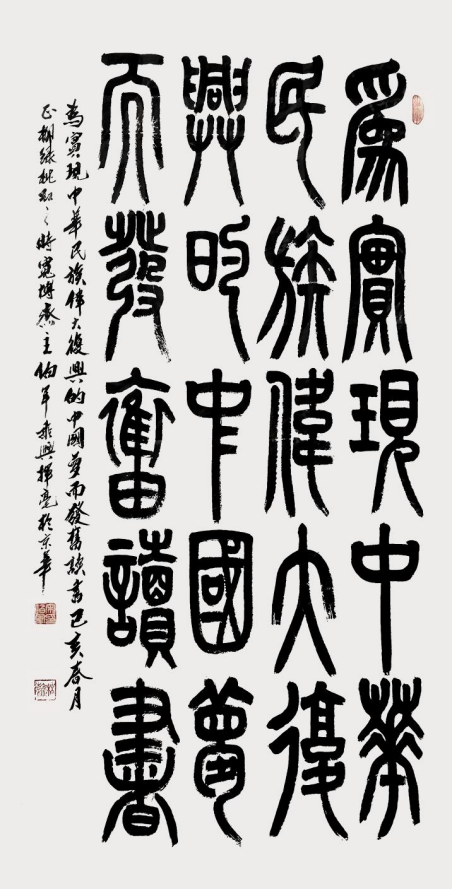 為實現中華
民族偉大復
興的中國夢
而發奮讀書
為實現中華民族偉大復興的中國夢而發奮讀書己亥春月
正柳綠桃紅之時寬博齋主伯軍乘興揮毫於京華